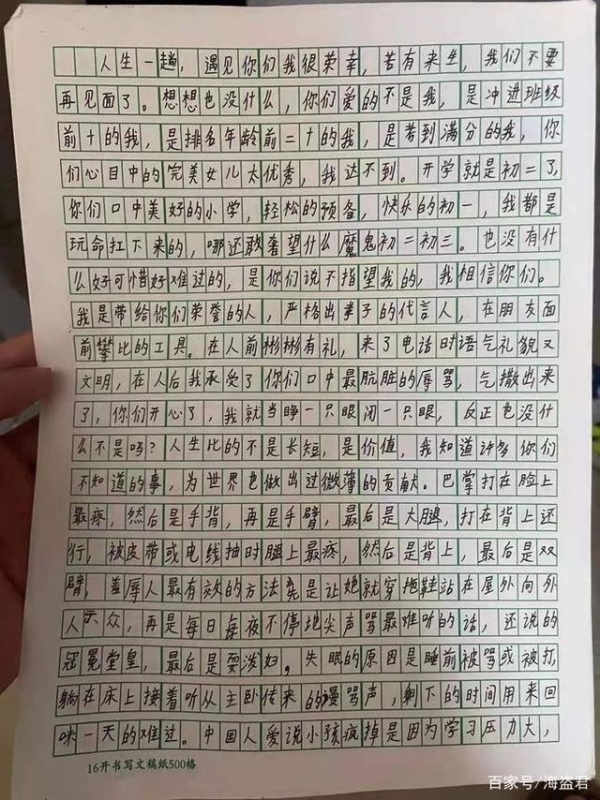 人生一趟，遇见你们我很荣幸，若有来生，我们不要
再见面了。想想也没什么，你们爱的不是我，是冲进班级
前十的我，是排名年龄前二十的我，是考到满分的我，你
们心目中的完美女儿太优秀，我达不到。开学就是初二了，
你们口中美好的小学，轻松的预备，快乐的初一，我都是
玩命扛下来的，哪还敢奢望什么魔鬼初二初三。也没有什
么好可惜好难过的，是你们说不指望我的，我相信你们。
我是带给你们荣誉的人，严格出孝子的代言人，在朋友面
前攀比的工具。在人前彬彬有礼，来了电话时语气礼貌又
文明，在人后我承受了你们口中最肮脏的辱骂，气撒出来
了，你们开心了，我就当睁一只眼闭一只眼，反正也没什
么不是吗？人生比的不是长短，是价值，我知道许多你们
不知道的事，为世界也做出过微薄的贡献。巴掌打在脸上
最疼，然后是手背，再是手臂，最后是大腿，打在背上还
行，被皮带或电线抽时腿上最疼，然后是背上，最后是双
臂，羞辱人最有效的方法竟是让她就穿拖鞋站在屋外向外
人示众，再是每日每夜不停地尖声骂最难听的话，还说的
冠冕堂皇，最后是耍泼妇。失眠的原因是睡前被骂或被打，
躺在床上接着听从主卧传来的谩骂声，剩下的时间用来回
味一天的难过。中国人爱说小孩疯掉是因为学习压力大，
16开书写文稿纸500格
百家号/海盗君